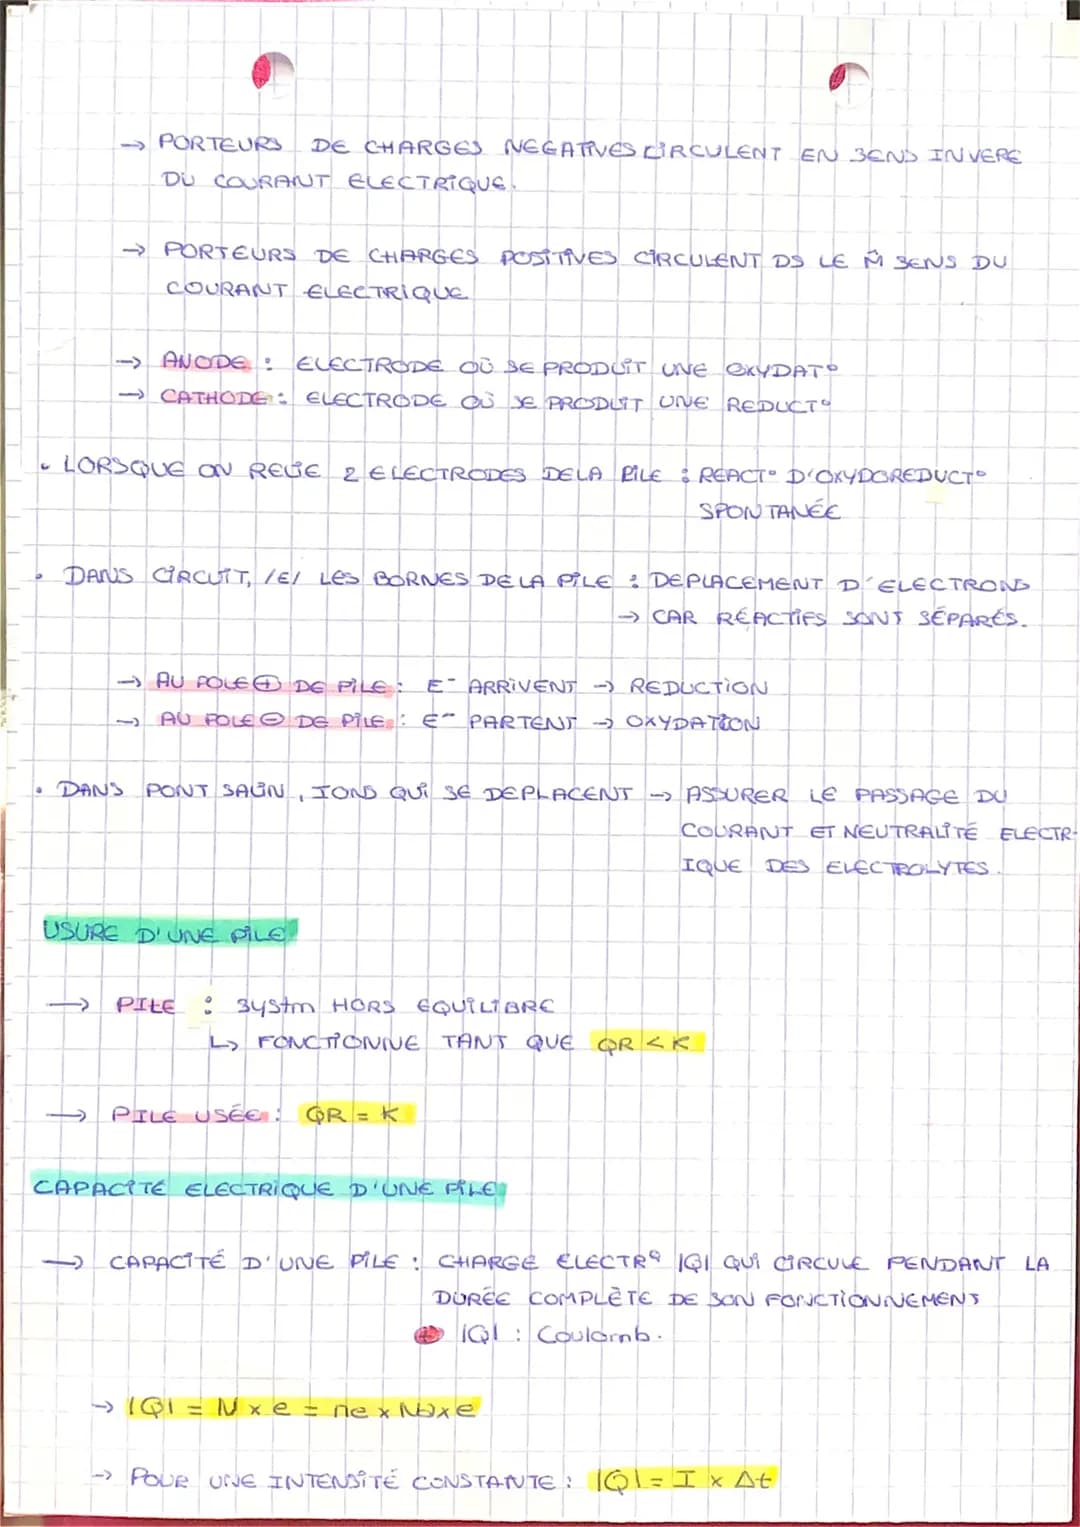 → PORTEURS DE CHARGES NEGATIVES CIRCULENT EN SENS INVERE
DU COURANT ELECTRIQUE.
→ PORTEURS DE CHARGES POSITIVES CIRCULENT DS LE M̂ SENS DU
COURANT ELECTRIQUE
→ ANODE : ELECTRODE OÙ SE PRODUIT UNE OXYDAT°
→ CATHODE : ELECTRODE OÙ SE PRODUIT UNE REDUCT°
• LORSQUE ON RELIE 2 ELECTRODES DE LA PILE : REACT° D'OXYDOREDUCT°
SPONTANÉE
• DANS CIRCUIT, /E/ LES BORNES DE LA PILE : DEPLACEMENT D'ELECTRONS
→ CAR RÉACTIFS SONT SÉPARÉS.
→ AU POLE ⊕ DE PILE : E⁻ ARRIVENT → REDUCTION
→ AU POLE ⊖ DE PILE : E⁻ PARTENT → OXYDATION
• DANS PONT SALIN, IONS QUI SE DEPLACENT → ASSURER LE PASSAGE DU
COURANT ET NEUTRALITÉ ELECTR-
IQUE DES ELECTROLYTES.
USURE D'UNE PILE
→ PILE : systm HORS EQUILIBRE
↳ FONCTIONNE TANT QUE QR < K
→ PILE USÉE : QR = K
CAPACITÉ ELECTRIQUE D'UNE PILE
→ CAPACITÉ D'UNE PILE : CHARGE ELECTRQ |Q| QUI CIRCULE PENDANT LA
DURÉE COMPLÈTE DE SON FONCTIONNEMENT
+ |Q| : Coulomb.
→ |Q| = N x e = ne x Na x e
→ POUR UNE INTENSITÉ CONSTANTE : |Q| = I x Δt